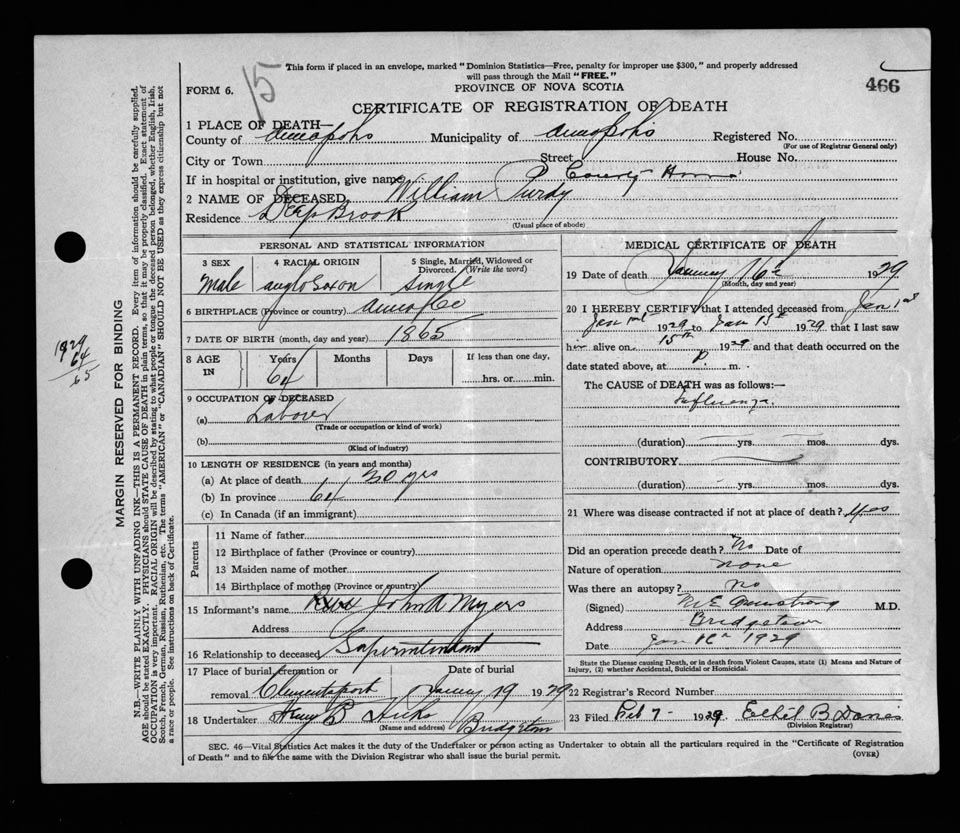 15
This form if placed in an envelope, marked "Dominion Statistics—Free, penalty for improper use $300," and properly addressed
will pass through the Mail "FREE."
466
FORM 6.
PROVINCE OF NOVA SCOTIA
CERTIFICATE OF REGISTRATION OF DEATH
1 PLACE OF DEATH—
County of Annapolis Municipality of Annapolis Registered No.
(For use of Registrar General only)
City or Town Street House No.
If in hospital or institution, give name County Home
2 NAME OF DECEASED, William P Purdy
Residence Deep Brook
(Usual place of abode)
PERSONAL AND STATISTICAL INFORMATION
3 SEX 4 RACIAL ORIGIN 5 Single, Married, Widowed or Divorced. (Write the word)
Male anglo Saxon Single
6 BIRTHPLACE (Province or country) Anna Co
7 DATE OF BIRTH (month, day and year) 1865
8 AGE IN Years Months Days If less than one day,
64 hrs. or min.
9 OCCUPATION OF DECEASED
(a) Laborer
(Trade or occupation or kind of work)
(b)
(Kind of industry)
10 LENGTH OF RESIDENCE (in years and months)
(a) At place of death 30 yrs
(b) In province 64
(c) In Canada (if an immigrant)
Parents
11 Name of father
12 Birthplace of father (Province or country)
13 Maiden name of mother
14 Birthplace of mother (Province or country)
15 Informant's name John A Myers
Address
16 Relationship to deceased Superintendant
17 Place of burial, cremation or removal Clementsport Date of burial January 19 1929
18 Undertaker Henry B Hicks Bridgetown
(Name and address)
MEDICAL CERTIFICATE OF DEATH
19 Date of death January 16th 1929
(Month, day and year)
20 I HEREBY CERTIFY that I attended deceased from Jan 1st
1929 to Jan 15th 1929 that I last saw
him alive on 15th 1929 and that death occurred on the
date stated above, at P m.
The CAUSE of DEATH was as follows:—
Influenza.
(duration) yrs. mos. dys.
CONTRIBUTORY
(duration) yrs. mos. dys.
21 Where was disease contracted if not at place of death? Yes
Did an operation precede death? No Date of
Nature of operation none
Was there an autopsy? No
(Signed) M E Armstrong M.D.
Address Bridgetown
Date Jan 1929
State the Disease causing Death, or in death from Violent Causes, state (1) Means and Nature of
Injury, (2) whether Accidental, Suicidal or Homicidal.
22 Registrar's Record Number
23 Filed Feb 7- 1929 Ethel B Davis
(Division Registrar)
SEC. 46—Vital Statistics Act makes it the duty of the Undertaker or person acting as Undertaker to obtain all the particulars required in the "Certificate of Registration
of Death" and to file the same with the Division Registrar who shall issue the burial permit.
(OVER)
1929
64
65
MARGIN RESERVED FOR BINDING
N.B.—WRITE PLAINLY WITH UNFADING INK—THIS IS A PERMANENT RECORD. Every item of information should be carefully supplied.
AGE should be stated EXACTLY. PHYSICIANS should STATE CAUSE OF DEATH in plain terms, so that it may be properly classified. Exact statement of
OCCUPATION is very important. RACIAL ORIGIN will be described by stating to what people or tongue the deceased person belonged, whether English, Irish,
Scotch, French, German, Russian, Ruthenian, etc. The terms "AMERICAN" or "CANADIAN" SHOULD NOT BE USED as they express citizenship but not
a race or people. See instructions on back of Certificate.